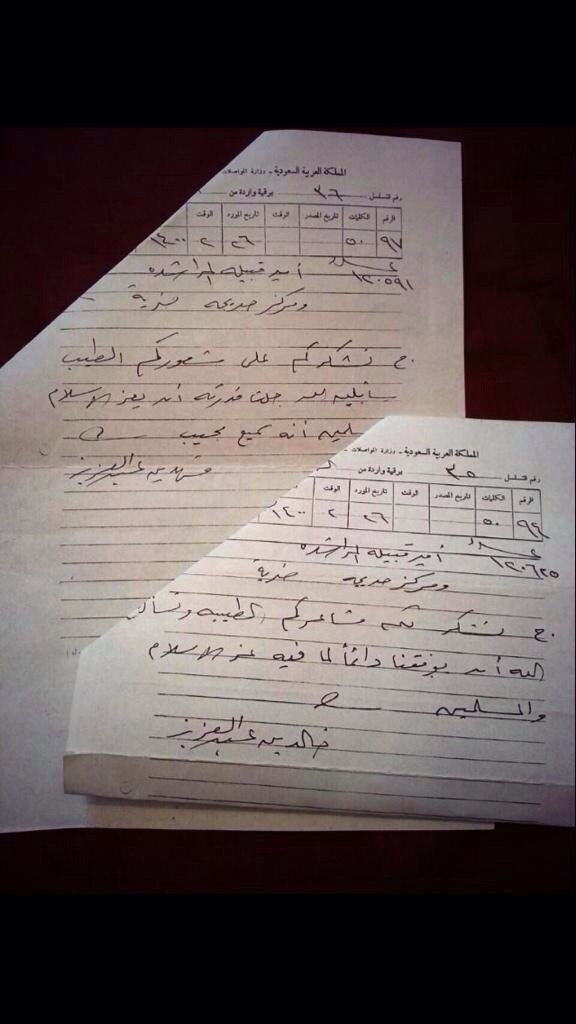 المملكة العربية السعودية - وزارة المواصلات
رقم التسلسل ٣٦ برقية واردة من
الرقم الكلمات تاريخ المصدر الوقت تاريخ المورد الوقت
٩٧ ٥٠ ٢٦ ٢ ١٤٠٠
عدد ١٢٠٥٩١ أمير قبيلة المراشده
ومركز حديجه ضرية
ج نشكركم على شعوركم الطيب
سائلين الله جلت قدرته أن يعز الإسلام
أنه سميع مجيب
فهد بن عبد العزيز
المملكة العربية السعودية - وزارة المواصلات
رقم التسلسل ٣٥ برقية واردة من
الرقم الكلمات تاريخ المصدر الوقت تاريخ المورد الوقت
٩٤ ٥٠ ٢٦ ٢ ١٤٠٠
عدد ١٢٠٦٢٥ أمير قبيلة المراشده
ومركز حديجه ضرية
ج نشكر لكم مشاعركم الطيبه ونسأل
الله أن يوفقنا دائماً لما فيه عز الإسلام
والمسلمين
خالد بن عبد العزيز